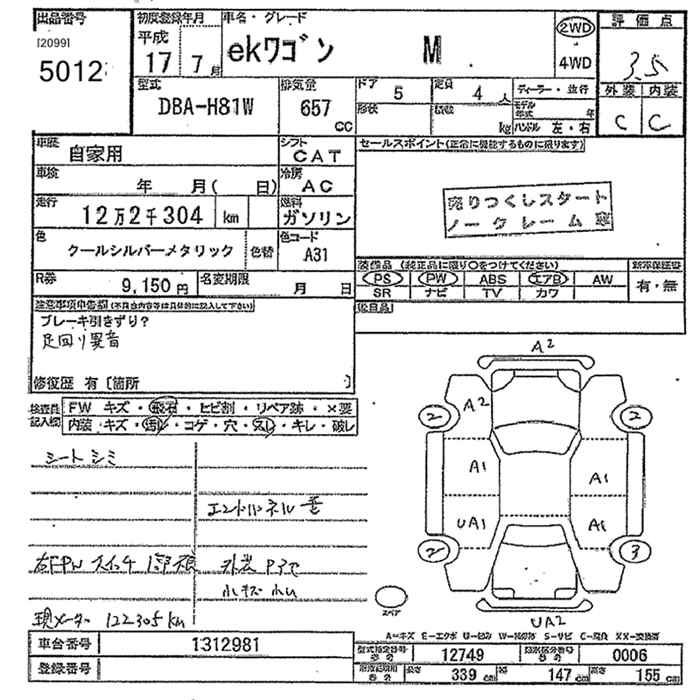 出品番号 初度登録年月 車名・グレード 評価点
[2099] 平成 2WD
5012 17 7月 ekワゴン M 4WD 3.5
型式 排気量 ドア 5 定員 4人 ディーラー・並行 外装 内装
DBA-H81W 657 CC 形状 積数 kg モデル年式 年 C C
ハンドル 左・右
車歴 自家用 シフト CAT セールスポイント(正常に機能するものに限ります)
車検 年 月( 日) 冷房 AC
売りつくしスタート
走行 12万2千304 km 燃料 ガソリン ノークレーム
色 クールシルバーメタリック 色替 色コード A31
装備品 (純正品に限り○をつけてください) 新車保証書
R券 9,150円 名変期限 月 日 PS PW ABS エアB AW 有・無
SR ナビ TV カワ
注意事項申告欄(不具合内容等は具体的に記入して下さい) 後日品
ブレーキ引きずり?
足回り異音
修復歴 有〔箇所 〕
検査員記入欄 FW キズ・飛石・ヒビ割・リペア跡・×要
内装・キズ・汚レ・コゲ・穴・スレ・キレ・破レ
A2
A2
2 2
A1 A1
UA1 A1
2 3
UA2
スペア
シートシミ
右FPWスイッチ
現メーター 122305km
A=キズ E=エクボ U=凹み S=サビ
車台番号 1312981 型式指定番号 12749 類別区分番号 0006
登録番号 長さ 339cm 幅 147cm 高さ 155cm